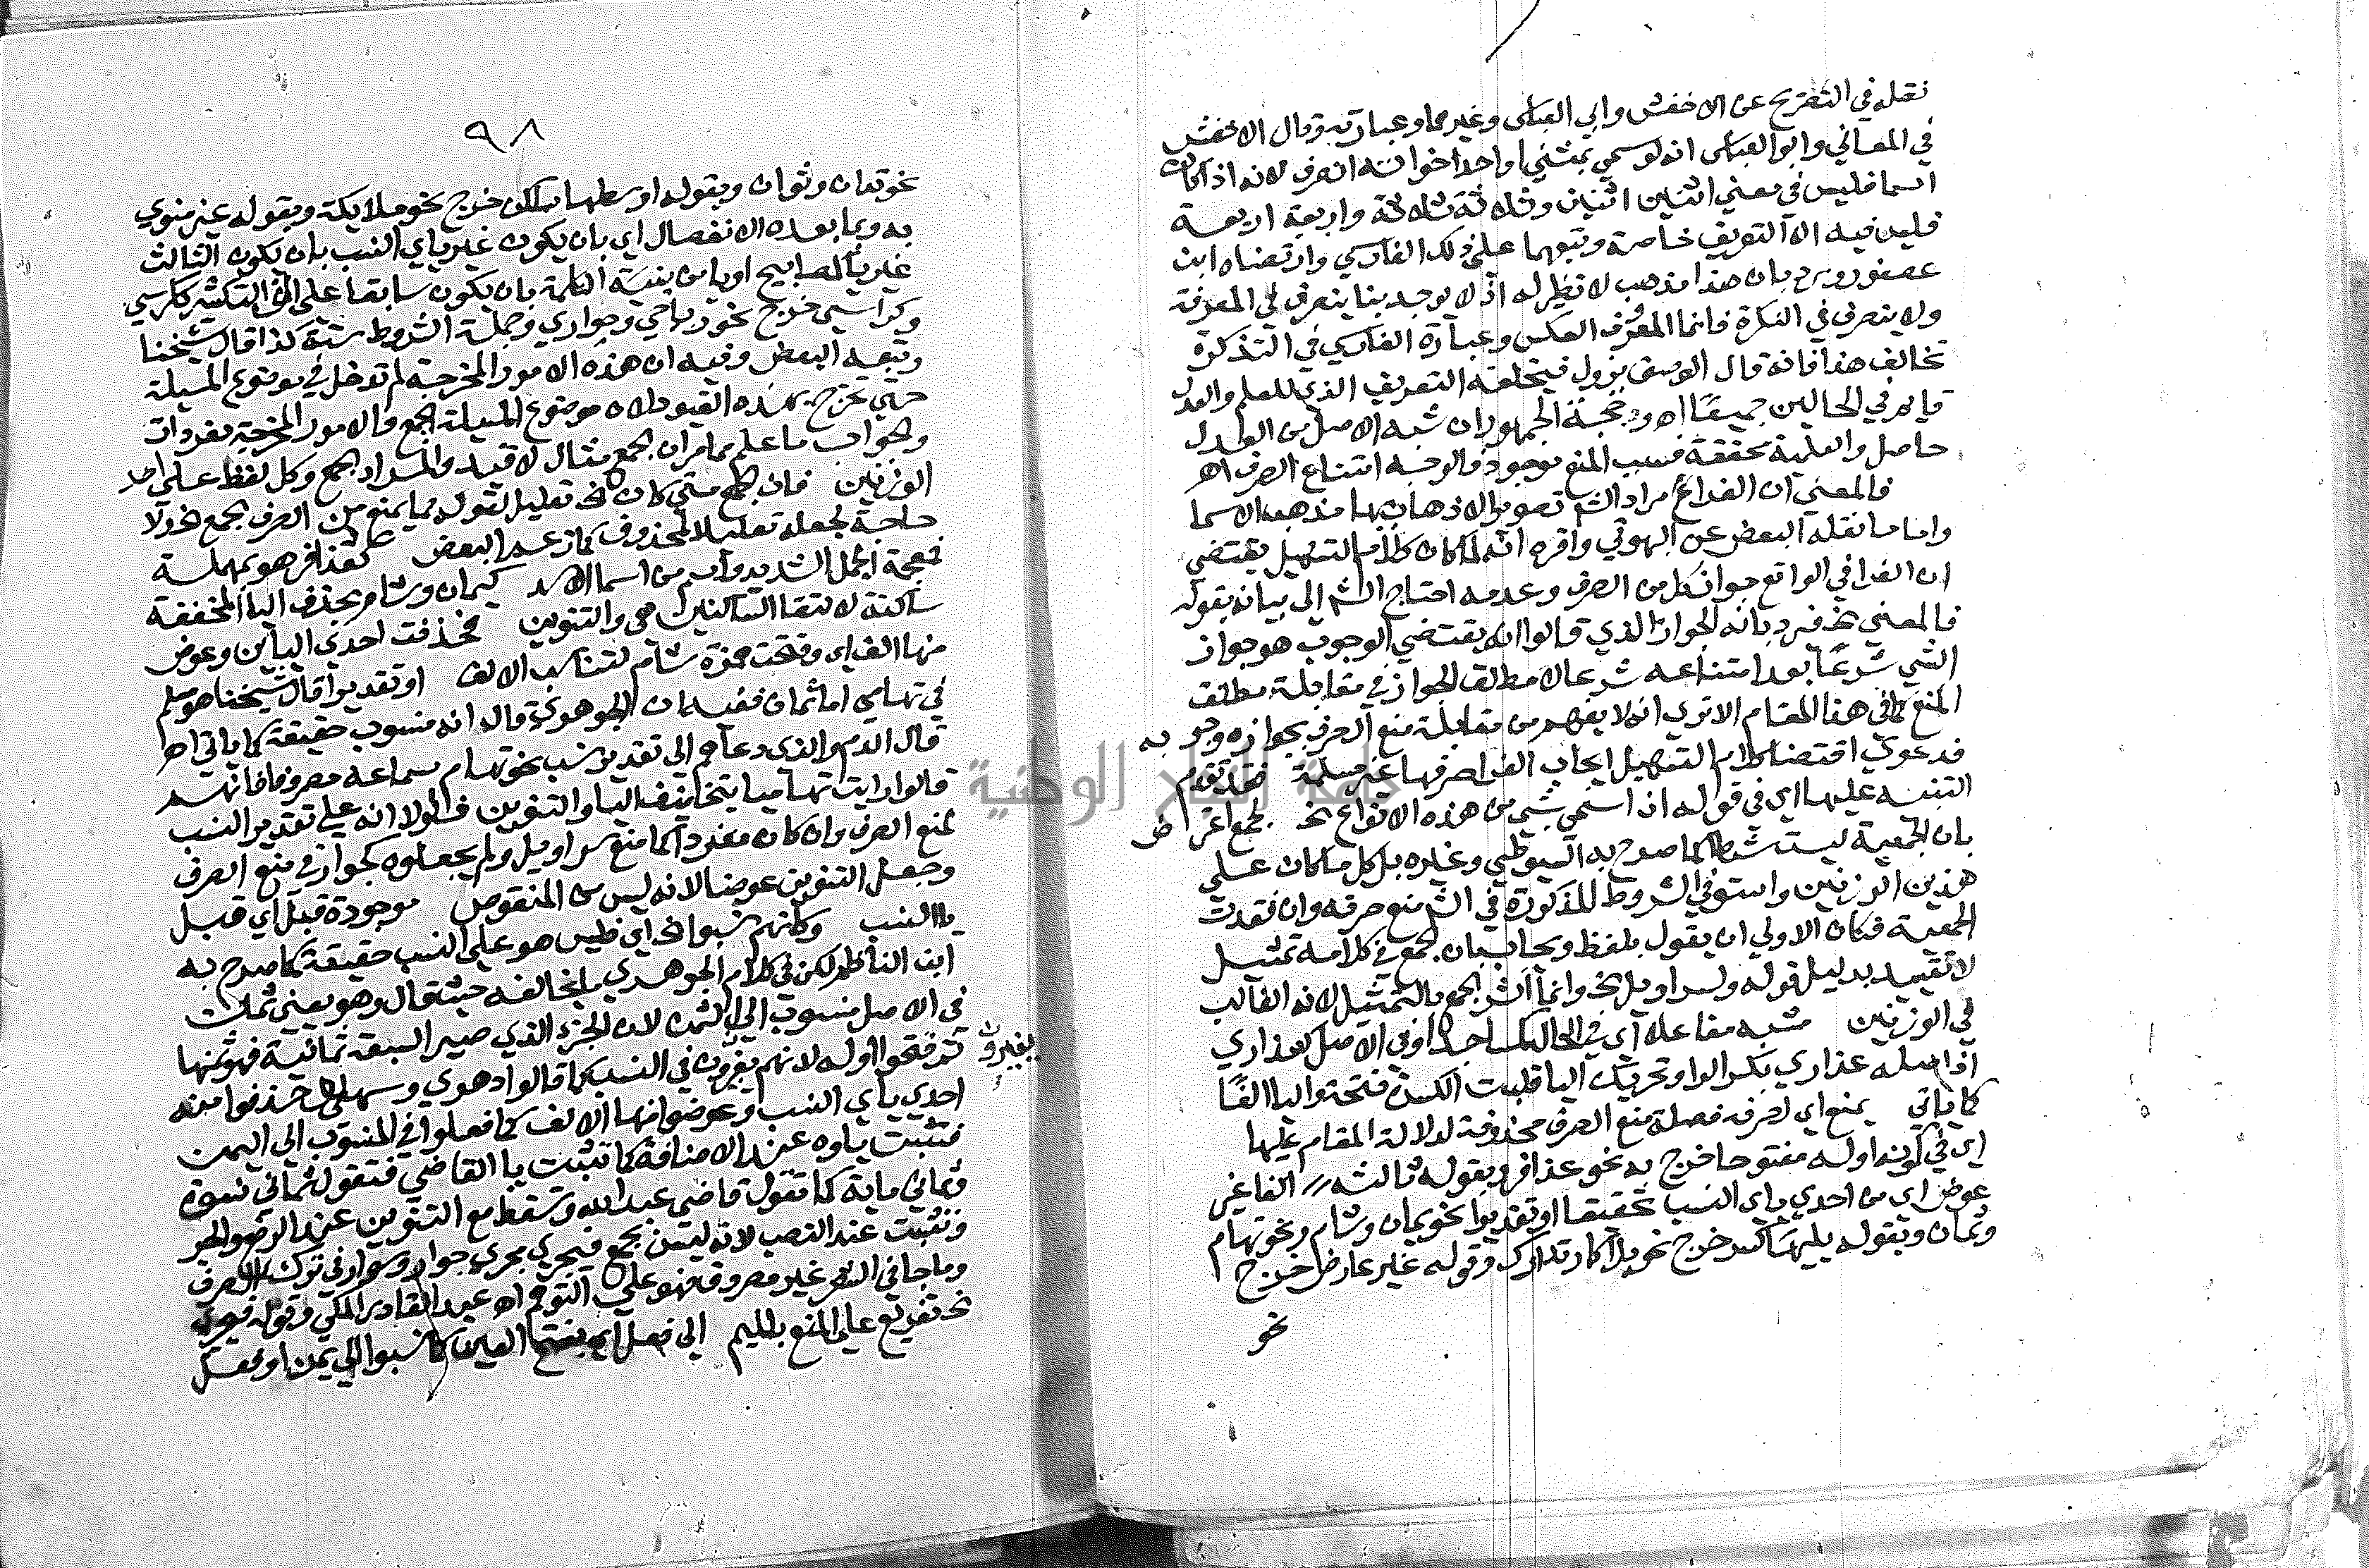 نقله في التصريح عن الاخفش وابي العباس وغيرهما وعبارته وقال الاخفش
في المعاني وابو العباس انه لو سمي بمثني او احد اخواته انصرف لانه اذا كان
اسما فليس في معني اثنين اثنين وثلاثة ثلاثة واربعة اربعة
فليس فيه الا التعريف خاصة وتبعهما على ذلك الفارسي وارتضاه ابن
عصفور ويرد بان هذا مذهب لا نظير له اذ لا يوجد بنا ينصرف في المعرفة
ولا ينصرف في النكرة فانما المعروف العكس وعبارة الفارسي في التذكرة
تخالف هذا فانه قال الوصف يزول فيخلفه التعريف الذي للعلم والعدل
قايم في الحالين جميعا اه وحجة الجمهور ان شبه الاصل من العدل
حاصل والعلمية محققة فسبب المنع موجود فالوجه امتناع الصرف اه
فالمعني ان الفراغ مراد الش تصويرا لاذهاب بها مذهب الاسما
واما ما نقله البعض عن البهوتي واقره انه لما كان كلام التسهيل يقتضي
ان الفرا في الواقع جواز كل من الصرف وعدمه احتاج الش الى بيانه بقوله
فالمعني نخ فيرد بانه الجواز الذي قالوا انه يقتضي الوجوب هو جواز
الشي شرعا بعد امتناعه شرعا لا مطلق الجواز في مقابلة مطلق
المنع كما في هذا المقام الا تري انه لا يفهم من مقابلة منع الصرف بجوازه وجو به
فدعوي اقتضا كلام التسهيل ايجاب الفرا صرفها غير مسلمة فقد تقدم
التنبيه عليها اي في قوله اذا سمي بشي من هذه الانواع نخ لجمع اعترا ض
بان الجمعية ليست شرطا كما صرح به السيوطي وغيره بل كل ما كان على
هذين الوزنين واستوفي الشروط المذكورة في الش منع صرفه وان فقدت
الجمعية فكان الاولي ان يقول بلفظ ويجاب بان الجمع في كلامه تمثيل
لا تقييد بدليل قوله ولسراويل نخ وانما اثر الجمع بالتمثيل لانه الغالب
في الوزنين مشبه مفاعلا اي في الحال كمساجد او في الاصل كعذاري
اذ اصله عذاري بكسر الراو تحريك اليا قلبت الكسرة فتحة واليا الفا
كما ياتي يمنع اي لصرفه فصلة منع الصرف محذوفة لدلالة المقام عليها
اي في كونه اوله مفتوحا خرج به نحو عذافر وبقوله ثالثه الفا غير
عوض اي من احدي ياي النسب تحقيقا او تقديرا نحو يمان وشام ونحو تهام
وثمان وبقوله يليها كسر خرج نحو بلا كا وتدارك وقوله غير عارض خرج
نحو
٩٨
نحو تمان وثوان وبقوله اوسطها ساكن خرج نحو ملايكة وبقوله غير منوي
به وبما بعده الانفصال اي بان يكون غير ياي النسب بان يكون الثالث
غير يا كمصابيح او يا من بنية الكلمة بان يكون سابقا على الف التكسير ككرسي
وكراسي خرج نحو رباحي وحواري وجملة الشروط ستة كذا قال شيخنا
وتبعه البعض وفيه ان هذه الامور المخرجة لم تدخل في موضوع المسيلة
حتي تخرج بهذه القيود لان موضوع المسيلة الجمع والامور المخرجة مفردات
والجواب ما علم مما مر ان الجمع مثال لا قيد والمراد الجمع وكل لفظ على احد
الوزنين فان الجمع متي كان نخ تعليل لقوله مما يمنع من الصرف الجمع نخ ولا
حاجة لجعله تعليلا لمحذوف كما زعمه البعض كعذافر هو بمهملة
فمعجمة الجمل الشديد واسم من اسما الاسد كيمان وشام بحذف اليا المخففة
ساكنة لالتقا الساكنين هي والتنوين فحذفت احدي اليائين وعوض
منها الف اي وفتحت همزة شام لتناسب الالف او تقديرا قال شيخنا هو مسلم
في تهامي اما ثمان ففيه ان الجوهري قال انه منسوب حقيقة كما ياتي اه
قال الدم والذي دعاهم الى تقدير نسب نحو تهام سماعه مصروفا فانهم
قالوا رايت تهاميا بتخفيف اليا والتنوين فلولا انه على تقدير النسب
لمنع الصرف وان كان مفردا كما منع سراويل ولم يجعلوه كجوار في منع الصرف
وجعل التنوين عوضا لانه ليس من المنقوص موجودة قبل اي قبل
يا النسب وكانهم نسبوا نخ اي فليس هو على النسب حقيقة كما صرح به
ابن الناظم لكن في كلام الجوهري ما يخالفه حيث قال وهو يعني ثمان
في الاصل منسوب الى الثمن لان الجزء الذي صير السبعة ثمانية فهو ثمنها
ثم فتحوا اوله لانهم يغيرون في النسب كما قالوا دهري وسهلي حذفوا منه
يغيرون
احدي ياي النسب وعوضوا منها الالف كما فعلوا في المنسوب الى اليمن
فتثبت ياوه عند الاضافة كما تثبت يا القاضي فتقول ثماني نسوة
وثماني ماية كما تقول قاضي عبد الله وتسقط مع التنوين عند الرفع والجر
وتثبت عند النصب لانه ليس بجمع فيجري مجري جوار وسوار في ترك الصرف
وما جا في الشعر غير مصروف فهو على التوهم اه عبد القادر المكي وقوله فيه
نخ تفريع على المنع بالميم الى فعل اي بفتح العين كما نسبوا الى يمن او فعل